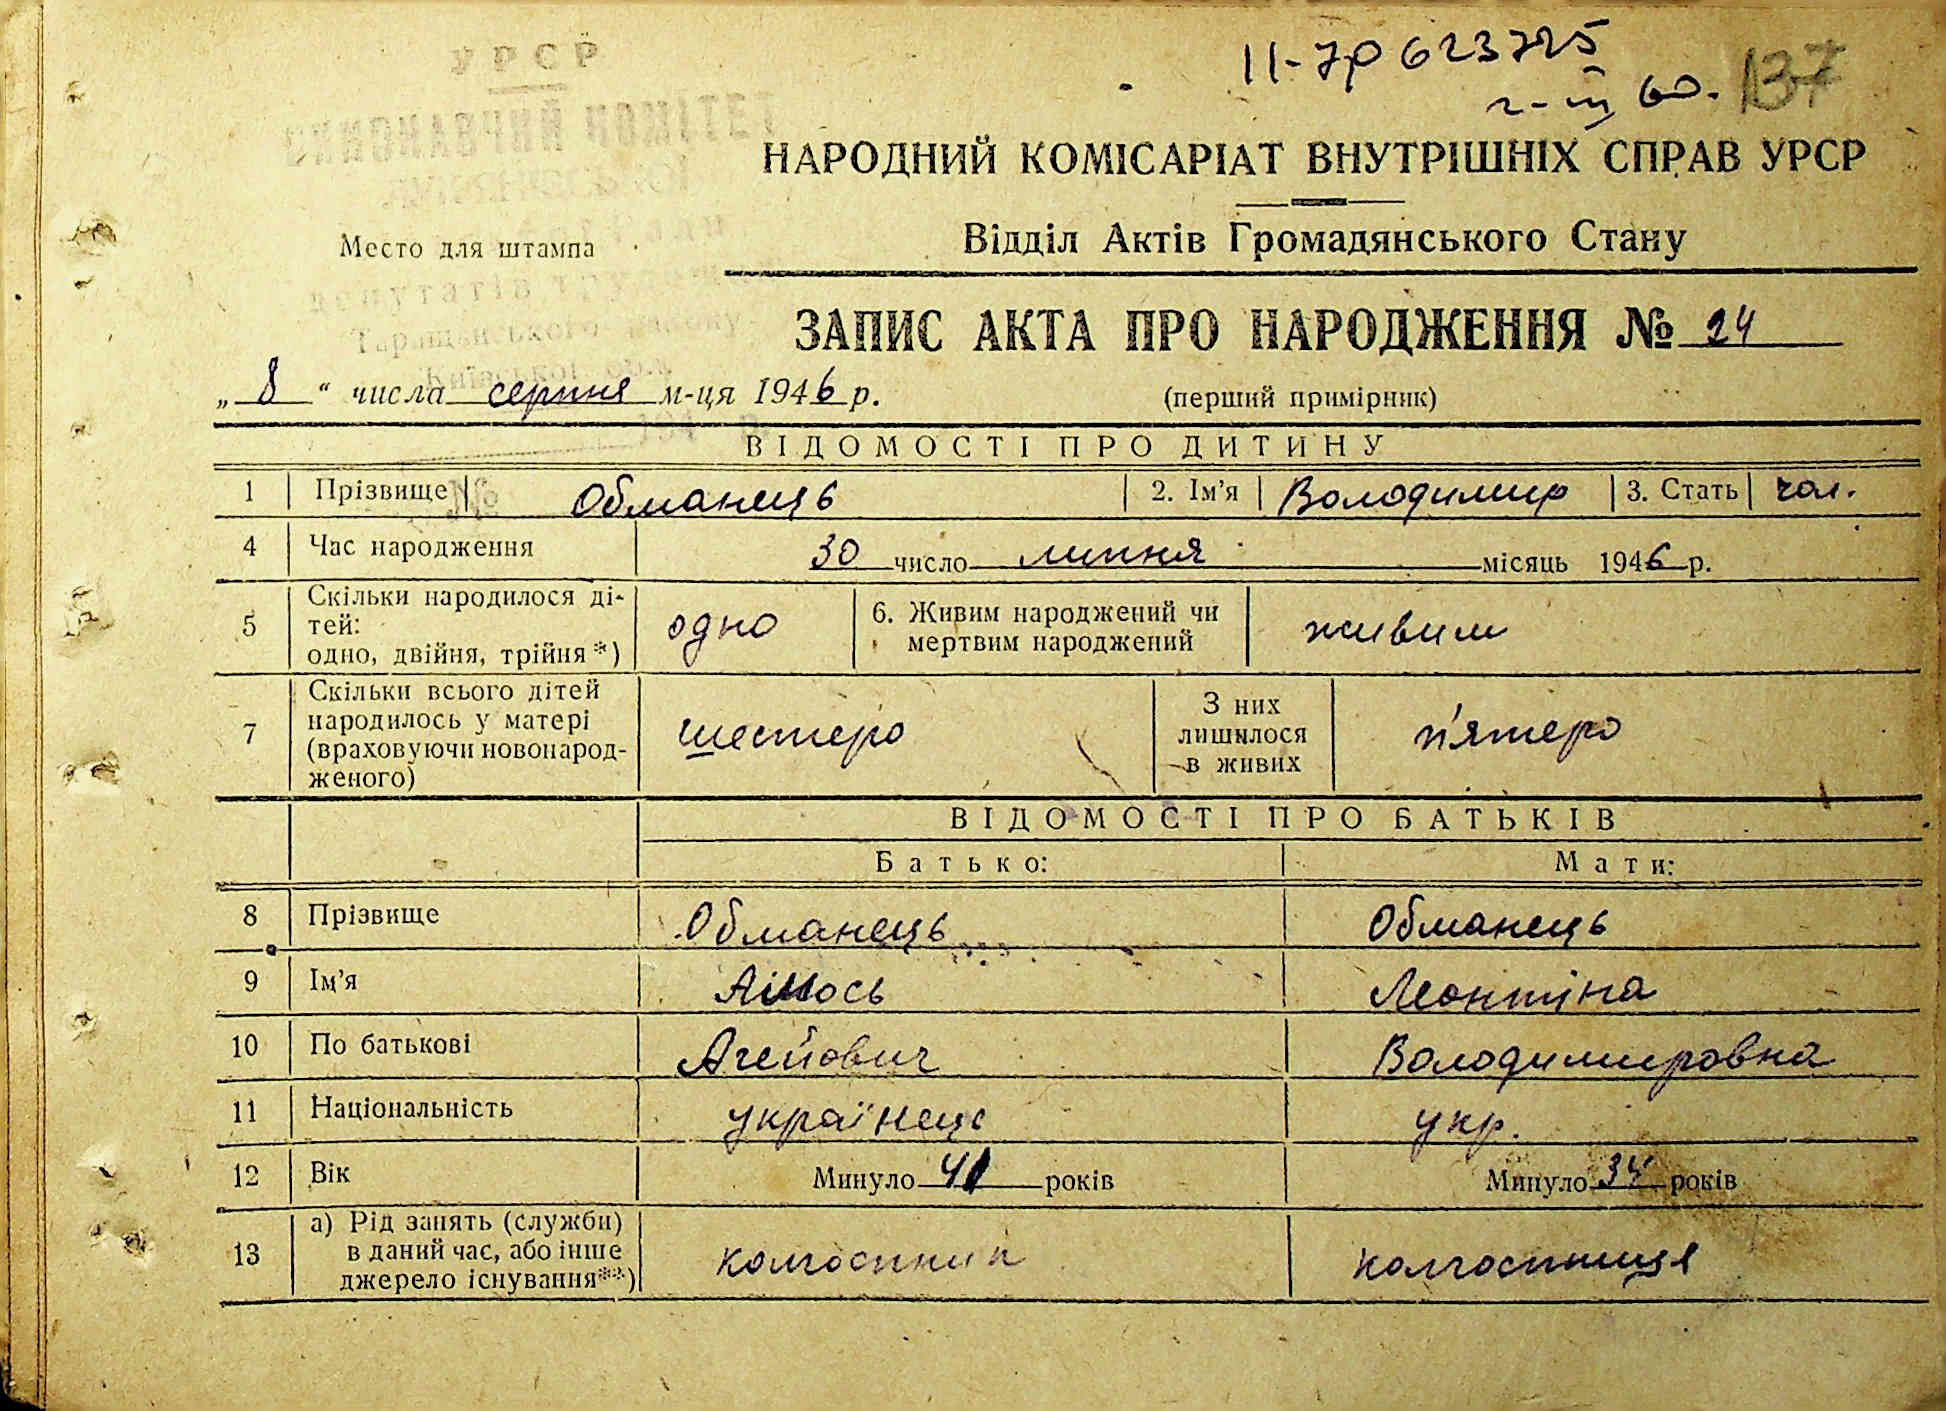 УРСР
ВИКОНАВЧИЙ КОМІТЕТ
ІІ-УР 623725
60. 137
НАРОДНИЙ КОМІСАРІАТ ВНУТРІШНІХ СПРАВ УРСР
Відділ Актів Громадянського Стану
Место для штампа
депутатів
Таращанського району
Київської обл.
ЗАПИС АКТА ПРО НАРОДЖЕННЯ № 24
„8“ числа серпня м-ця 1946 р. (перший примірник)
ВІДОМОСТІ ПРО ДИТИНУ
1 Прізвище Обманець 2. Ім'я Володимир 3. Стать чол.
4 Час народження 30 число липня місяць 1946 р.
5 Скільки народилося ді-
тей:
одно, двійня, трійня*) одно 6. Живим народжений чи
мертвим народжений живим
7 Скільки всього дітей
народилось у матері
(враховуючи новонарод-
женого) шестеро З них
лишилося
в живих п'ятеро
ВІДОМОСТІ ПРО БАТЬКІВ
Батько: Мати:
8 Прізвище Обманець Обманець
9 Ім'я Амось Леонтіна
10 По батькові Агейович Володимировна
11 Національність українець укр.
12 Вік Минуло 41 років Минуло 34 років
13 а) Рід занять (служби)
в даний час, або інше
джерело існування**) колгоспник колгоспниця